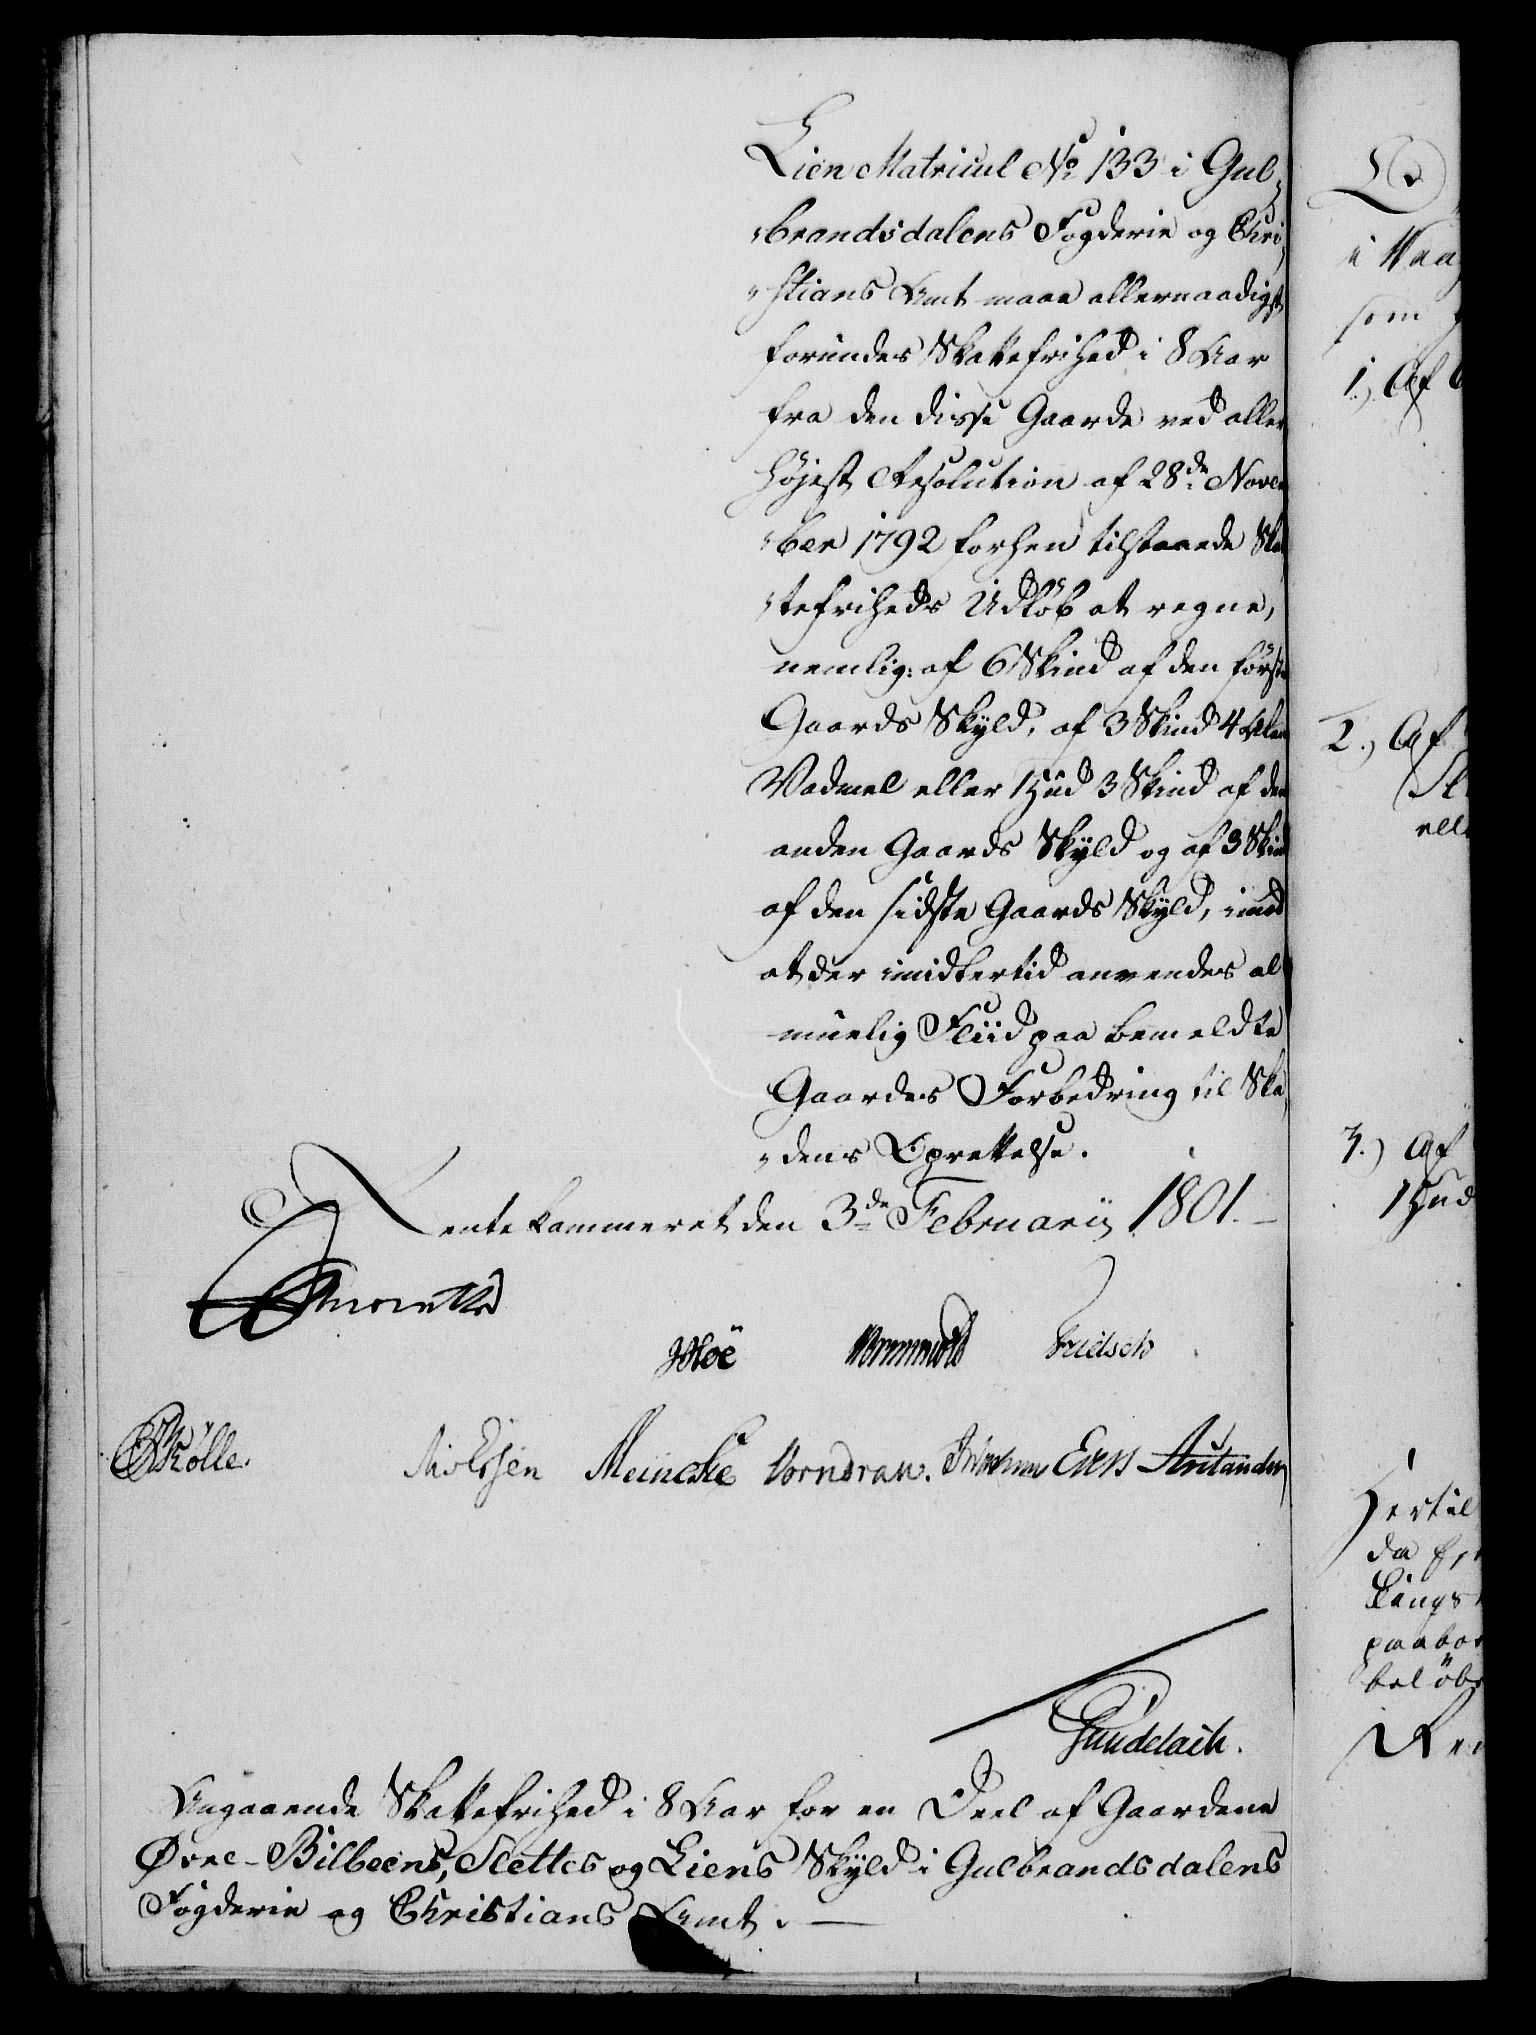 Lien Matricul No 133 i Gul-
"brandsdalens Fogderie og Chri-
"stians Amt maae allernaadigst
forundes Skattefrihed i 8 Aar
fra den disse Gaarde ved aller
højest Resolution af 28de Novem
"ber 1792 forhen tilstaaede Ska
"tefriheds Udløb at regne,
nemlig: af 6 Skind af den første
Gaards Skyld, af 3 Skind 4 Alen
Vadmel eller 1 Hud 3 Skind af den
anden Gaards Skyld og af 3 Skind
af den sidste Gaards Skyld, imod
at der imidlertid anvendes al
muelig Fliid paa bemeldte
Gaardes Forbedring til Ska-
"dens Oprettelse.
Rentekammeret den 3de Februarij 1801.
Wormskiold
Fridsch
Skølle.
Meincke Vorndran. Evers
Gundelach.
Angaaende Skattefrihed i 8 Aar for en Deel af Gaardene
Øvre-Bilbeens, Slettes og Liens Skyld i Gulbrandsdalens
Fogderie og Christians Amt.
L
i Vaag
som
1.) Af
2.) Af
ell
3.) Af
1 Hud
Hertil
da
paabo
beløb
Ren